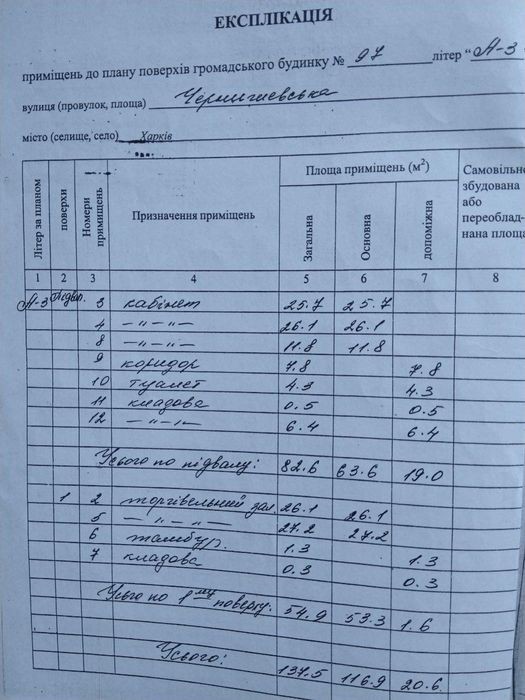 ЕКСПЛІКАЦІЯ
приміщень до плану поверхів громадського будинку № 97 літер "А-3
вулиця (провулок, площа) Чернишевська
місто (селище, село) Харків
Літер за планом поверхи Номери примищень Призначення приміщень Площа приміщень (м²) Загальна Основна допоміжна Самовільно збудована або переоблад- нана площа
1 2 3 4 5 6 7 8
А-3 Підвал. 3 кабінет 25.7 25.7
4 —〃—〃— 26.1 26.1
8 —〃—〃— 11.8 11.8
9 коридор 7.8 7.8
10 туалет 4.3 4.3
11 кладова 0.5 0.5
12 —〃—〃— 6.4 6.4
Усього по підвалу: 82.6 63.6 19.0
1 2 торгівельний зал 26.1 26.1
5 —〃—〃— 27.2 27.2
6 тамбур. 1.3 1.3
7 кладова 0.3 0.3
Усього по 1му поверху: 54.9 53.3 1.6
Усього: 137.5 116.9 20.6